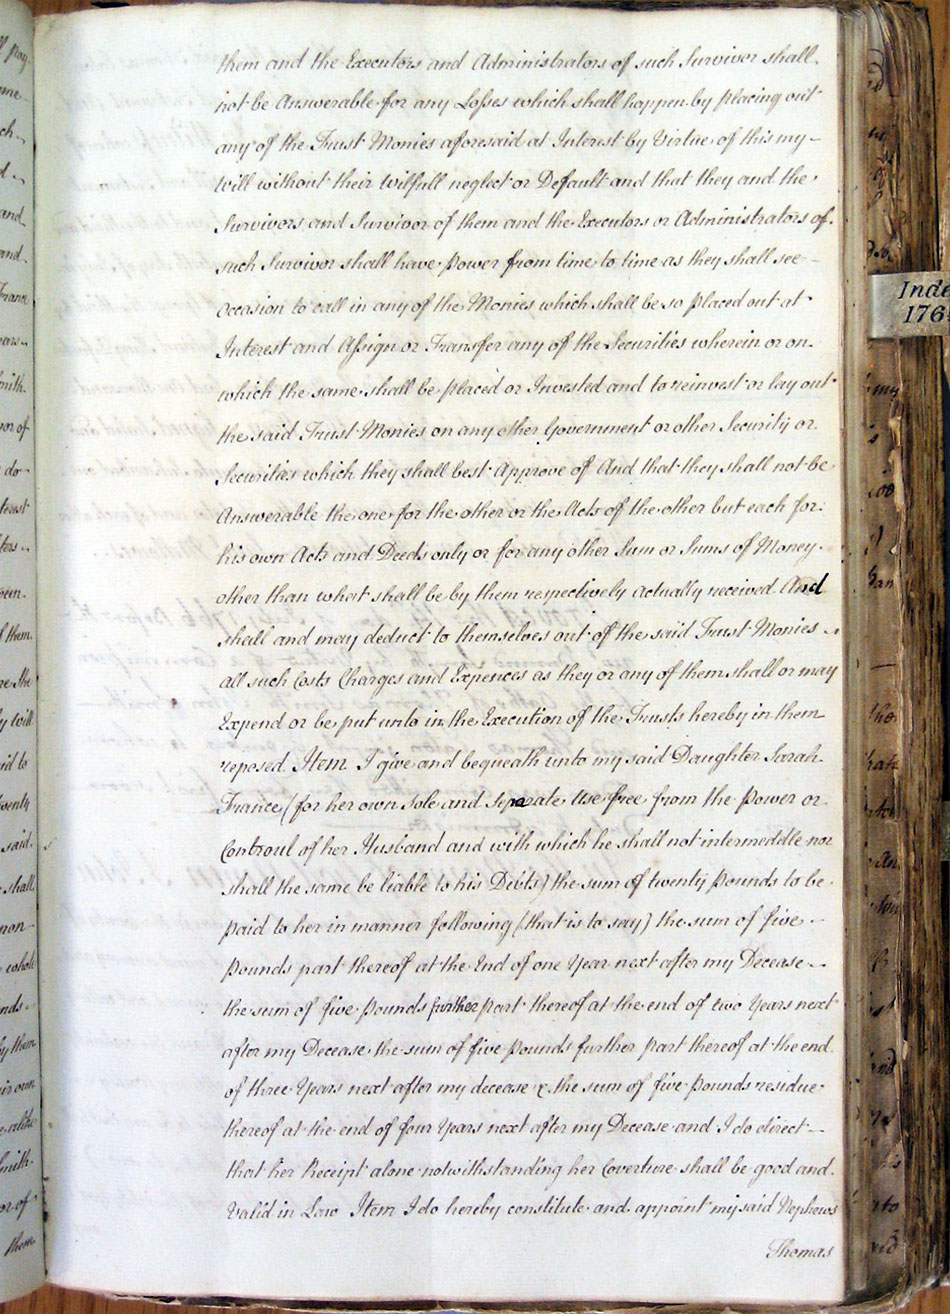 them and the Executors and Administrators of such Survivor shall
not be Answerable for any Losses which shall happen by placing out
any of the Trust Monies aforesaid at Interest by Virtue of this my
will without their wilfull neglect or Default and that they and the
Survivors and Survivor of them and the Executors or Administrators of
such Survivor shall have power from time to time as they shall see
occasion to call in any of the Monies which shall be so placed out at
Interest and Assign or Transfer any of the Securities wherein or on
which the same shall be placed or Invested and to reinvest or lay out
the said Trust Monies on any other Government or other Security or
Securitas which they shall best Approve of And that they shall not be
Answerable the one for the other or the Acts of the other but each for
his own Acts and Deeds only or for any other Sum or Sums of Money
other than what shall be by them respectively actually received And
shall and may deduct to themselves out of the said Trust Monies
all such Costs Charges and Expences as they or any of them shall or may
Expend or be put unto in the Execution of the Trusts hereby in them
reposed Item I give and bequeath unto my said Daughter Sarah
France (for her own Sole and Separate Use free from the Power or
Controul of her Husband and with which he shall not intermeddle nor
shall the same be liable to his Debts) the sum of twenty pounds to be
paid to her in manner following (that is to say) the sum of five
pounds part thereof at the End of one Year next after my Decease
the sum of five pounds further part thereof at the end of two Years next
after my Decease the sum of five pounds further part thereof at the end
of three Years next after my decease & the sum of five pounds residue
thereof at the end of four Years next after my Decease and I do direct
that her Receipt alone notwithstanding her Coverture shall be good and
Valid in Law Item I do hereby constitute and appoint my said Nephews
Thomas
Inde
176